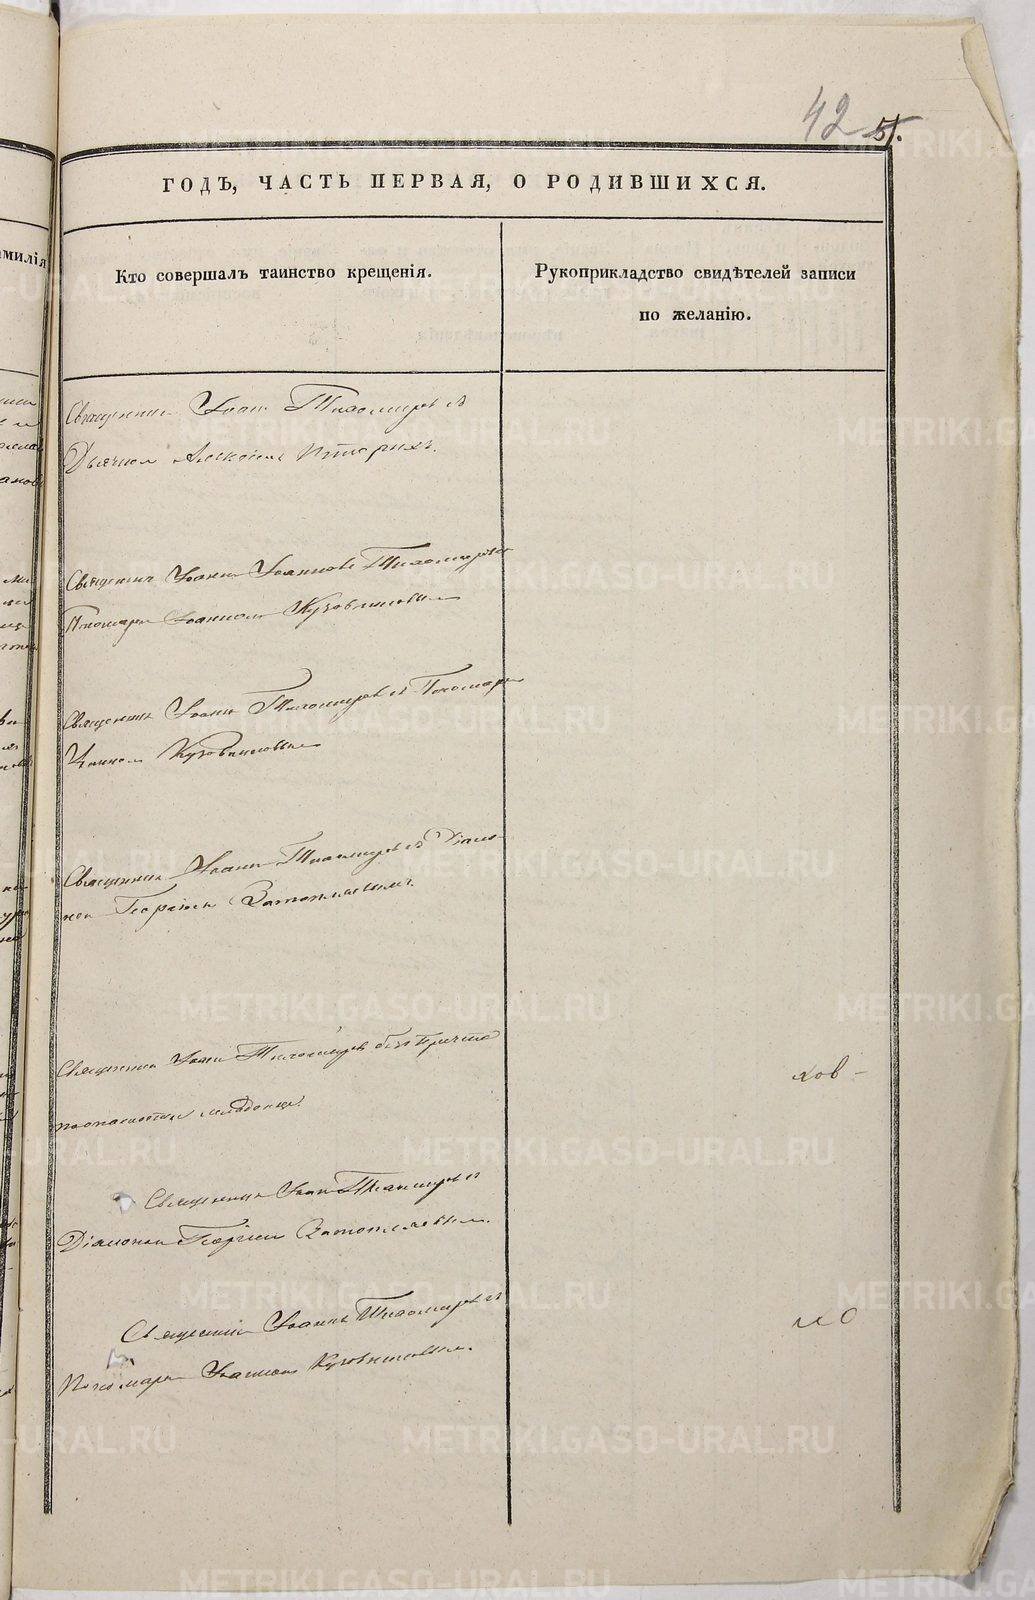 42 51.
ГОДЪ, ЧАСТЬ ПЕРВАЯ, О РОДИВШИХСЯ.
амилія
Кто совершалъ таинство крещенія.
Рукоприкладство свидѣтелей записи
по желанію.
Священникъ Іоаннъ Тихомировъ
Дьячкомъ Алексіемъ
Священникъ Іоаннъ Іоанновъ Тихомировъ
Пономаремъ Іоанномъ Кузовниковымъ
Священникъ Іоаннъ Тихомировъ Пономарем
Іоанномъ Кузовниковымъ
Священникъ Іоаннъ Тихомировъ Діако-
номъ Георгіемъ Затопляевымъ.
Священникъ Іоаннъ Тихомировъ безъ причта
по опасности младенца.
ховъ -
Священникъ Іоаннъ Тихомировъ
Діакономъ Георгіемъ Затопляевымъ.
Священникъ Іоаннъ Тихомировъ
Пономаремъ Іоанномъ Кузовниковымъ.
METRIKI.GASO-URAL.RU